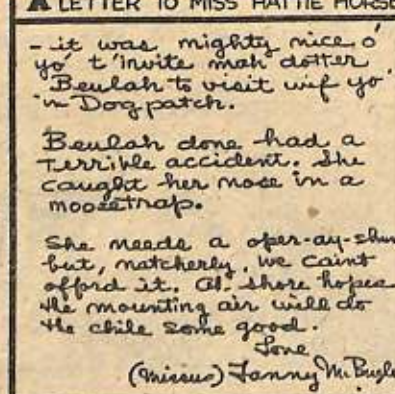 A LETTER TO MISS HATTIE HORSE
- it was mighty nice o'
yo' t'invite mah dotter
Beulah to visit wif yo'
in Dogpatch.
Beulah done had a
terrible accident. She
caught her nose in a
moosetrap.
She needs a oper-ay-shun
but, natcherly, we caint
afford it. Ah shore hopes
the mounting air will do
the chile some good.
Love
(Missus) Fanny McBugle